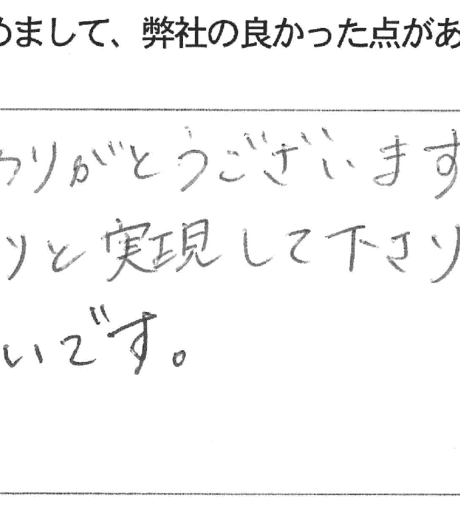 めまして、弊社の良かった点があ
りがとうございます
りと実現して下さり
いです。